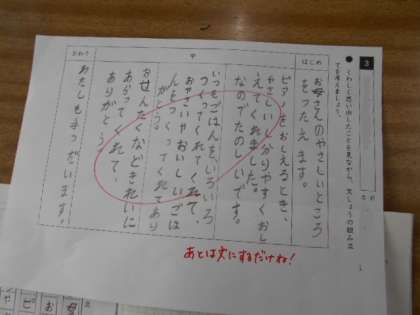 3
●くわしく思い出したことを見ながら、文しょうの組み立
てを考えましょう。
はじめ
お母さんのやさしいところ
をつたえます。
中
ピアノをおしえるとき、
やさしいしわかりやすくおし
えてくれました。
なのでたのしいです。
いつもごはんをいろいろ
つくってくれてくれて、
おやさいやおいしいごは
んをつくってくれてあり
がとう。
おせんたくなどきれいに
あらってくれて、
ありがとう。
おわり
わたしも手つだいます。
あとは文にするだけね！